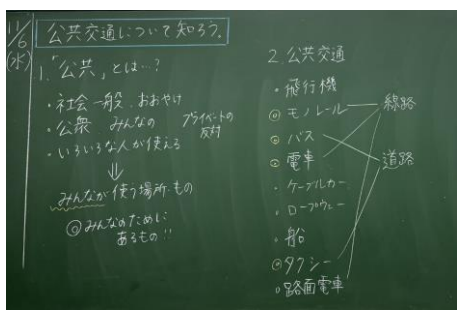 11/6
(水)
公共交通について知ろう。
1.「公共」とは…?
・社会一般、おおやけ
・公衆 みんなの プライベートの
反対
・いろいろな人が使える
⇓
みんなが使う場所・もの
◎みんなのために
あるもの!!
2.公共交通
・飛行機
◎モノレール
◎バス
◎電車
・ケーブルカー
・ロープウェー
・船
◎タクシー
◦路面電車
線路
道路